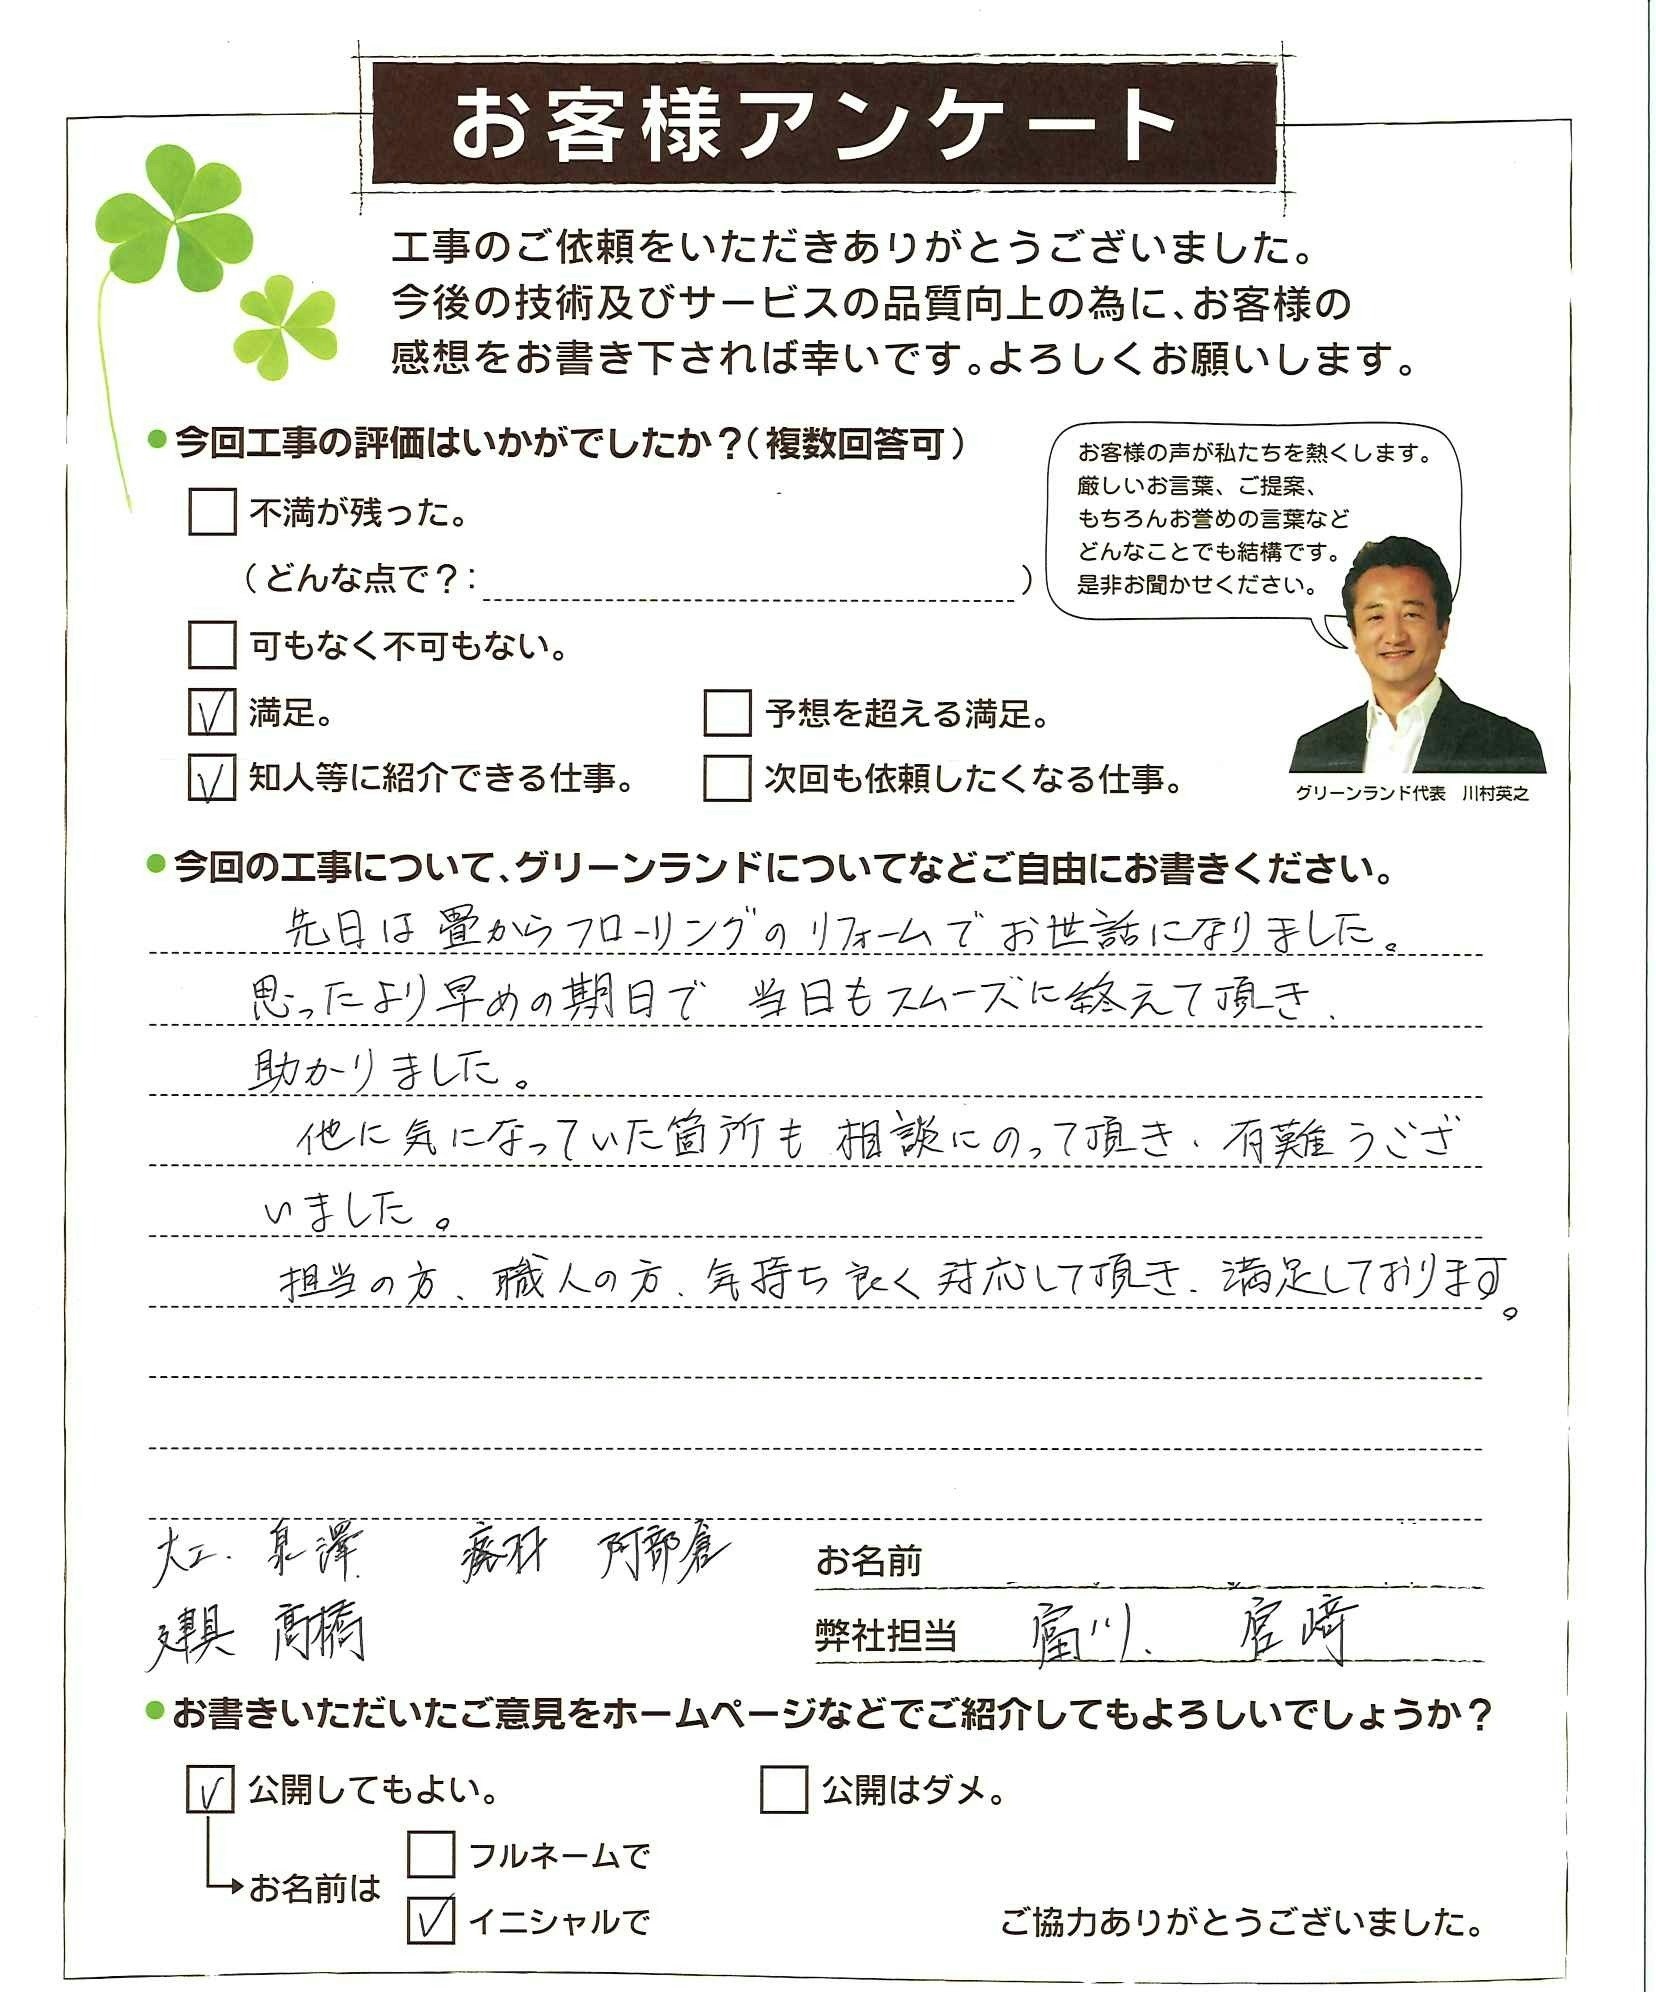 お客様アンケート
工事のご依頼をいただきありがとうございました。
今後の技術及びサービスの品質向上の為に、お客様の
感想をお書き下されば幸いです。よろしくお願いします。
●今回工事の評価はいかがでしたか?(複数回答可)
不満が残った。
(どんな点で?: )
可もなく不可もない。
満足。 予想を超える満足。
知人等に紹介できる仕事。 次回も依頼したくなる仕事。
お客様の声が私たちを熱くします。
厳しいお言葉、ご提案、
もちろんお誉めの言葉など
どんなことでも結構です。
是非お聞かせください。
グリーンランド代表 川村英之
●今回の工事について、グリーンランドについてなどご自由にお書きください。
先日は畳からフローリングのリフォームでお世話になりました。
思ったより早めの期日で 当日もスムーズに終えて頂き、
助かりました。
他に気になっていた箇所も相談にのって頂き、有難うござ
いました。
担当の方、職人の方、気持ち良く対応して頂き、満足しております。
大工、泉澤 廃材 阿部倉 お名前
建具 高橋 弊社担当 富川、 宮﨑
●お書きいただいたご意見をホームページなどでご紹介してもよろしいでしょうか?
公開してもよい。 公開はダメ。
お名前は フルネームで
イニシャルで
ご協力ありがとうございました。